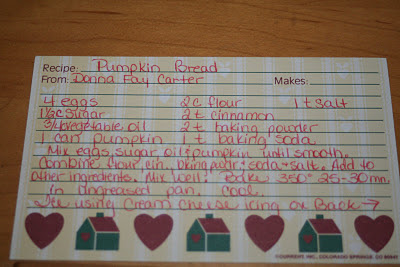 Recipe: Pumpkin Bread
From: Donna Fay Carter Makes:
4 eggs 2c flour 1 t salt
1½c sugar 2 t cinnamon
3/4 c vegetable oil 2 t baking powder
1 can pumpkin 1 t baking soda
Mix eggs, sugar oil & pumpkin until smooth.
Combine flour, cin., bking pwdr & soda & salt. Add to
other ingredients. Mix well. Bake 350° 25-30 mn.
in ungreased pan. Cool.
Ice using cream cheese icing on Back →
©CURRENT, INC., COLORADO SPRINGS, CO 80941